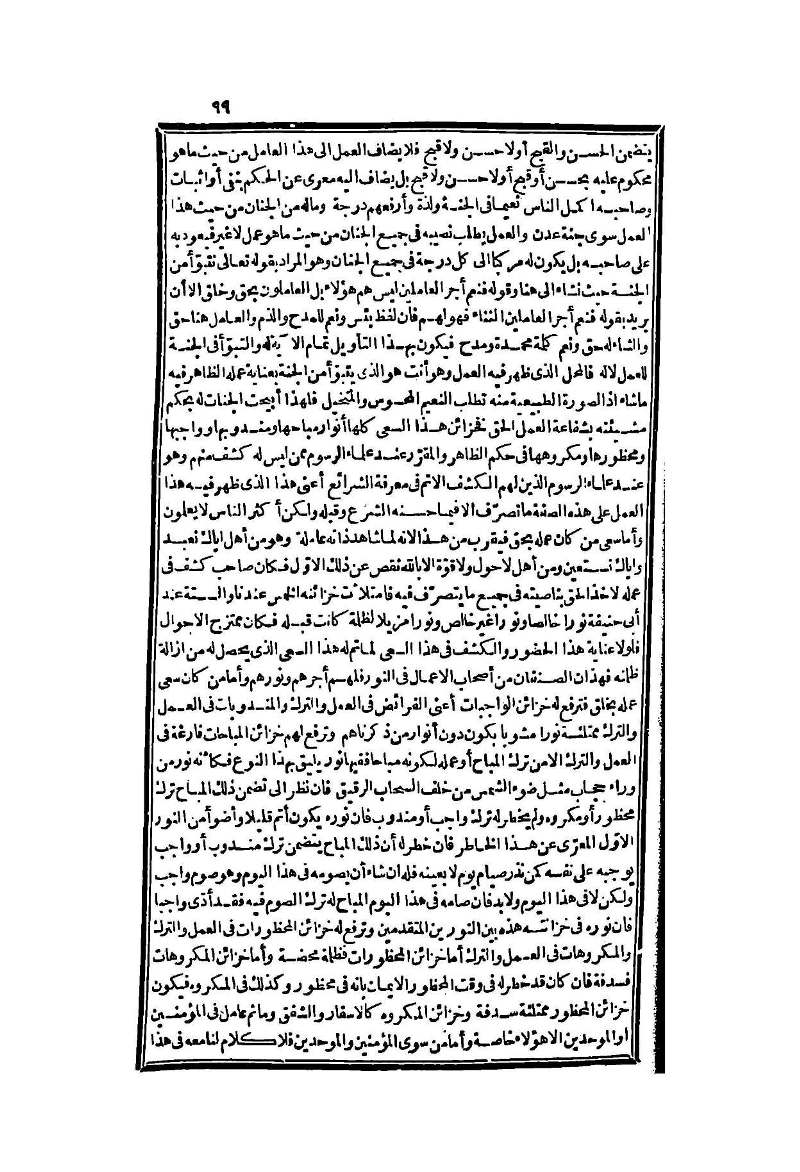 ٩٩
يتضمن الحسن والقبح أو لا حسن ولا قبح فلا يضاف العمل الى هذا العامل من حيث ما هو
محكوم عليه بحسن أو قبح أو لا حسن ولا قبح بل يضاف اليه معرى عن الحكم بنفى أو اثبات
وصاحبه اكمل الناس نعيما فى الجنة ولذة وأرفعهم درجة وماله من الجنان من حيث هذا
العمل سوى جنة عدن والعمل يطلب نصيبه فى جميع الجنان من حيث ما هو عمل لا غير فيعود به
على صاحبه بل يكون له مركبا الى كل درجة فى جميع الجنان وهو المراد بقوله تعالى نتبوّأ من
الجنة حيث نشاء الى هنا وقوله فنعم أجر العاملين ليس هم هؤلاء بل العاملون بحق وخلق الا أن
يريد بقوله فنعم أجر العاملين الثناء فهو لهم فان لفظ بئس ونعم للمدح والذم والعامل هنا حق
والثناء له حق ونعم كلمة محمدة ومدح فيكون بهذا التأويل تمام الآية له والتبوّأ فى الجنة
للعمل لاله فالمحل الذى ظهر فيه العمل وهو أنت هو الذى يتبوّأ من الجنة بعناية عمله الظاهر فيه
ما شاء اذ الصورة الطبيعية منه تطلب النعيم المحسوس والمتخيل فلهذا أبيحت الجنات له بحكم
مشيئته بشفاعة العمل الحق فخزائن هذا السعى كلها أنوار مباحها ومندوبها وواجبها
ومحظورها ومكروهها فى حكم الظاهر والمقرّر عند علماء الرسوم ممن ليس له كشف منهم وهو
عند علماء الرسوم الذين لهم الكشف الاتم فى معرفة الشرائع أعنى هذا الذى ظهر فيه هذا
العمل على هذه الصفة ما تصرّف الا فيما حسنه الشرع وقبله ولكن أكثر الناس لا يعلمون
وأما سعى من كان عمله بحق فيقرب من هذا الانه لما شاهد ذاته عاملة وهو من أهل اياك نعبد
واياك نستعين ومن أهل لا حول ولا قوّة الا بالله نقص عن ذلك الاوّل فكان صاحب كشف فى
عمله لاخذ الحق بناصيته فى جميع ما يتصرّف فيه فامتلأت خزائنه الخمس عندنا والستة عند
أبى حنيفة نورا خالصا ونورا غير خالص ونورا مزيلا لظلمة كانت قبله فكان ممتزج الاحوال
فلولا عناية هذا الحضور والكشف فى هذا السعى لما تم له هذا السعى الذى يحصل له من ازالة
ظلمه فهذان الصنفان من أصحاب الاعمال فى النور فلهم أجرهم ونورهم وأما من كان سعى
عمله بخلق فترفع له خزائن الواجبات أعنى الفرائض فى العمل والترك والمندوبات فى العمل
والترك ممتلئة نورا مشوبا يكون دون أنوار من ذكرناهم وترفع لهم خزائن المباحات فارغة فى
العمل والترك الا من ترك المباح أو عمله لكونه مباحا ففيها نور يليق بهذا النوع فكانه نور من
وراء حجاب مثل ضوء الشمس من خلف السحاب الرقيق فان نظر الى تضمن ذلك المباح ترك
محظور أو مكروه ولم يخطر له ترك واجب أو مندوب فان نوره يكون أتم قليلا وأضوأ من النور
الاوّل المعرّى عن هذا الخاطر فان خطر له أن ذلك المباح يتضمن ترك مندوب أو واجب
يوجبه على نفسه كمن نذر صيام يوم لا بعينه فله ان شاء أن يصومه فى هذا اليوم وهو صوم واجب
ولكن لا فى هذا اليوم ولا بد فان صامه فى هذا اليوم المباح له ترك الصوم فيه فقد أدّى واجبا
فان نوره فى خزانته هذه بين النورين المتقدمين وترفع له خزائن المحظورات فى العمل والترك
والمكروهات فى العمل والترك أما خزائن المحظورات فظلمة محضة وأما خزائن المكروهات
فسدفة فان كان قد خطر له فى وقت المحظور الايمان بانه فى محظور وكذلك فى المكروه فيكون
خزائن المحظور ممتلئة سدفة وخزائن المكروه كالاسفار والشفق وما تم عامل فى المؤمنين
أو الموحدين الا هؤلاء خاصة وأما من سوى المؤمنين والموحدين فلا كلام لنا معه فى هذا